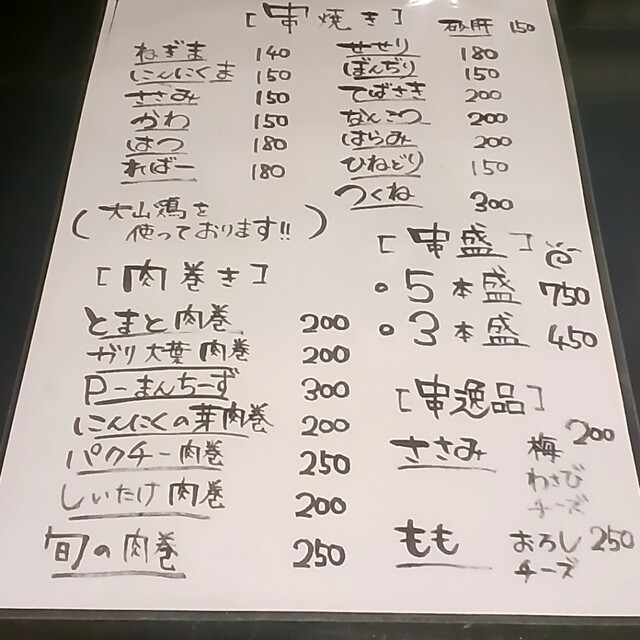 [串焼き]
ねぎま 140
にんにくま 150
ささみ 150
かわ 150
はつ 180
ればー 180
(大山鶏を
使っております!!)
砂肝 150
せせり 180
ぼんぢり 150
てばさき 200
なんこつ 200
はらみ 200
ひねどり 150
つくね 300
[肉巻き]
とまと肉巻 200
ガリ大葉肉巻 200
P-まんちーず 300
にんにくの芽肉巻 200
パクチー肉巻 250
しいたけ肉巻 200
旬の肉巻 250
[串盛]
• 5本盛 750
• 3本盛 450
[串逸品]
ささみ 梅 200
わさび
チーズ
もも おろし 250
チーズ